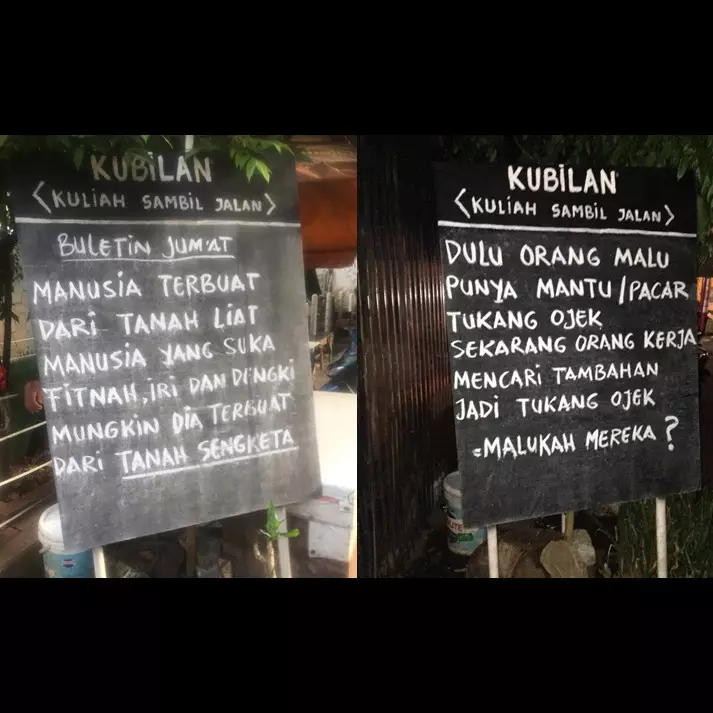 KUBILAN
<KULIAH SAMBIL JALAN>
BULETIN JUM'AT
MANUSIA TERBUAT
DARI TANAH LIAT
MANUSIA YANG SUKA
FITNAH, IRI DAN DENGKI
MUNGKIN DIA TERBUAT
DARI TANAH SENGKETA
KUBILAN
<KULIAH SAMBIL JALAN>
DULU ORANG MALU
PUNYA MANTU/PACAR
TUKANG OJEK
SEKARANG ORANG KERJA
MENCARI TAMBAHAN
JADI TUKANG OJEK
=MALUKAH MEREKA?